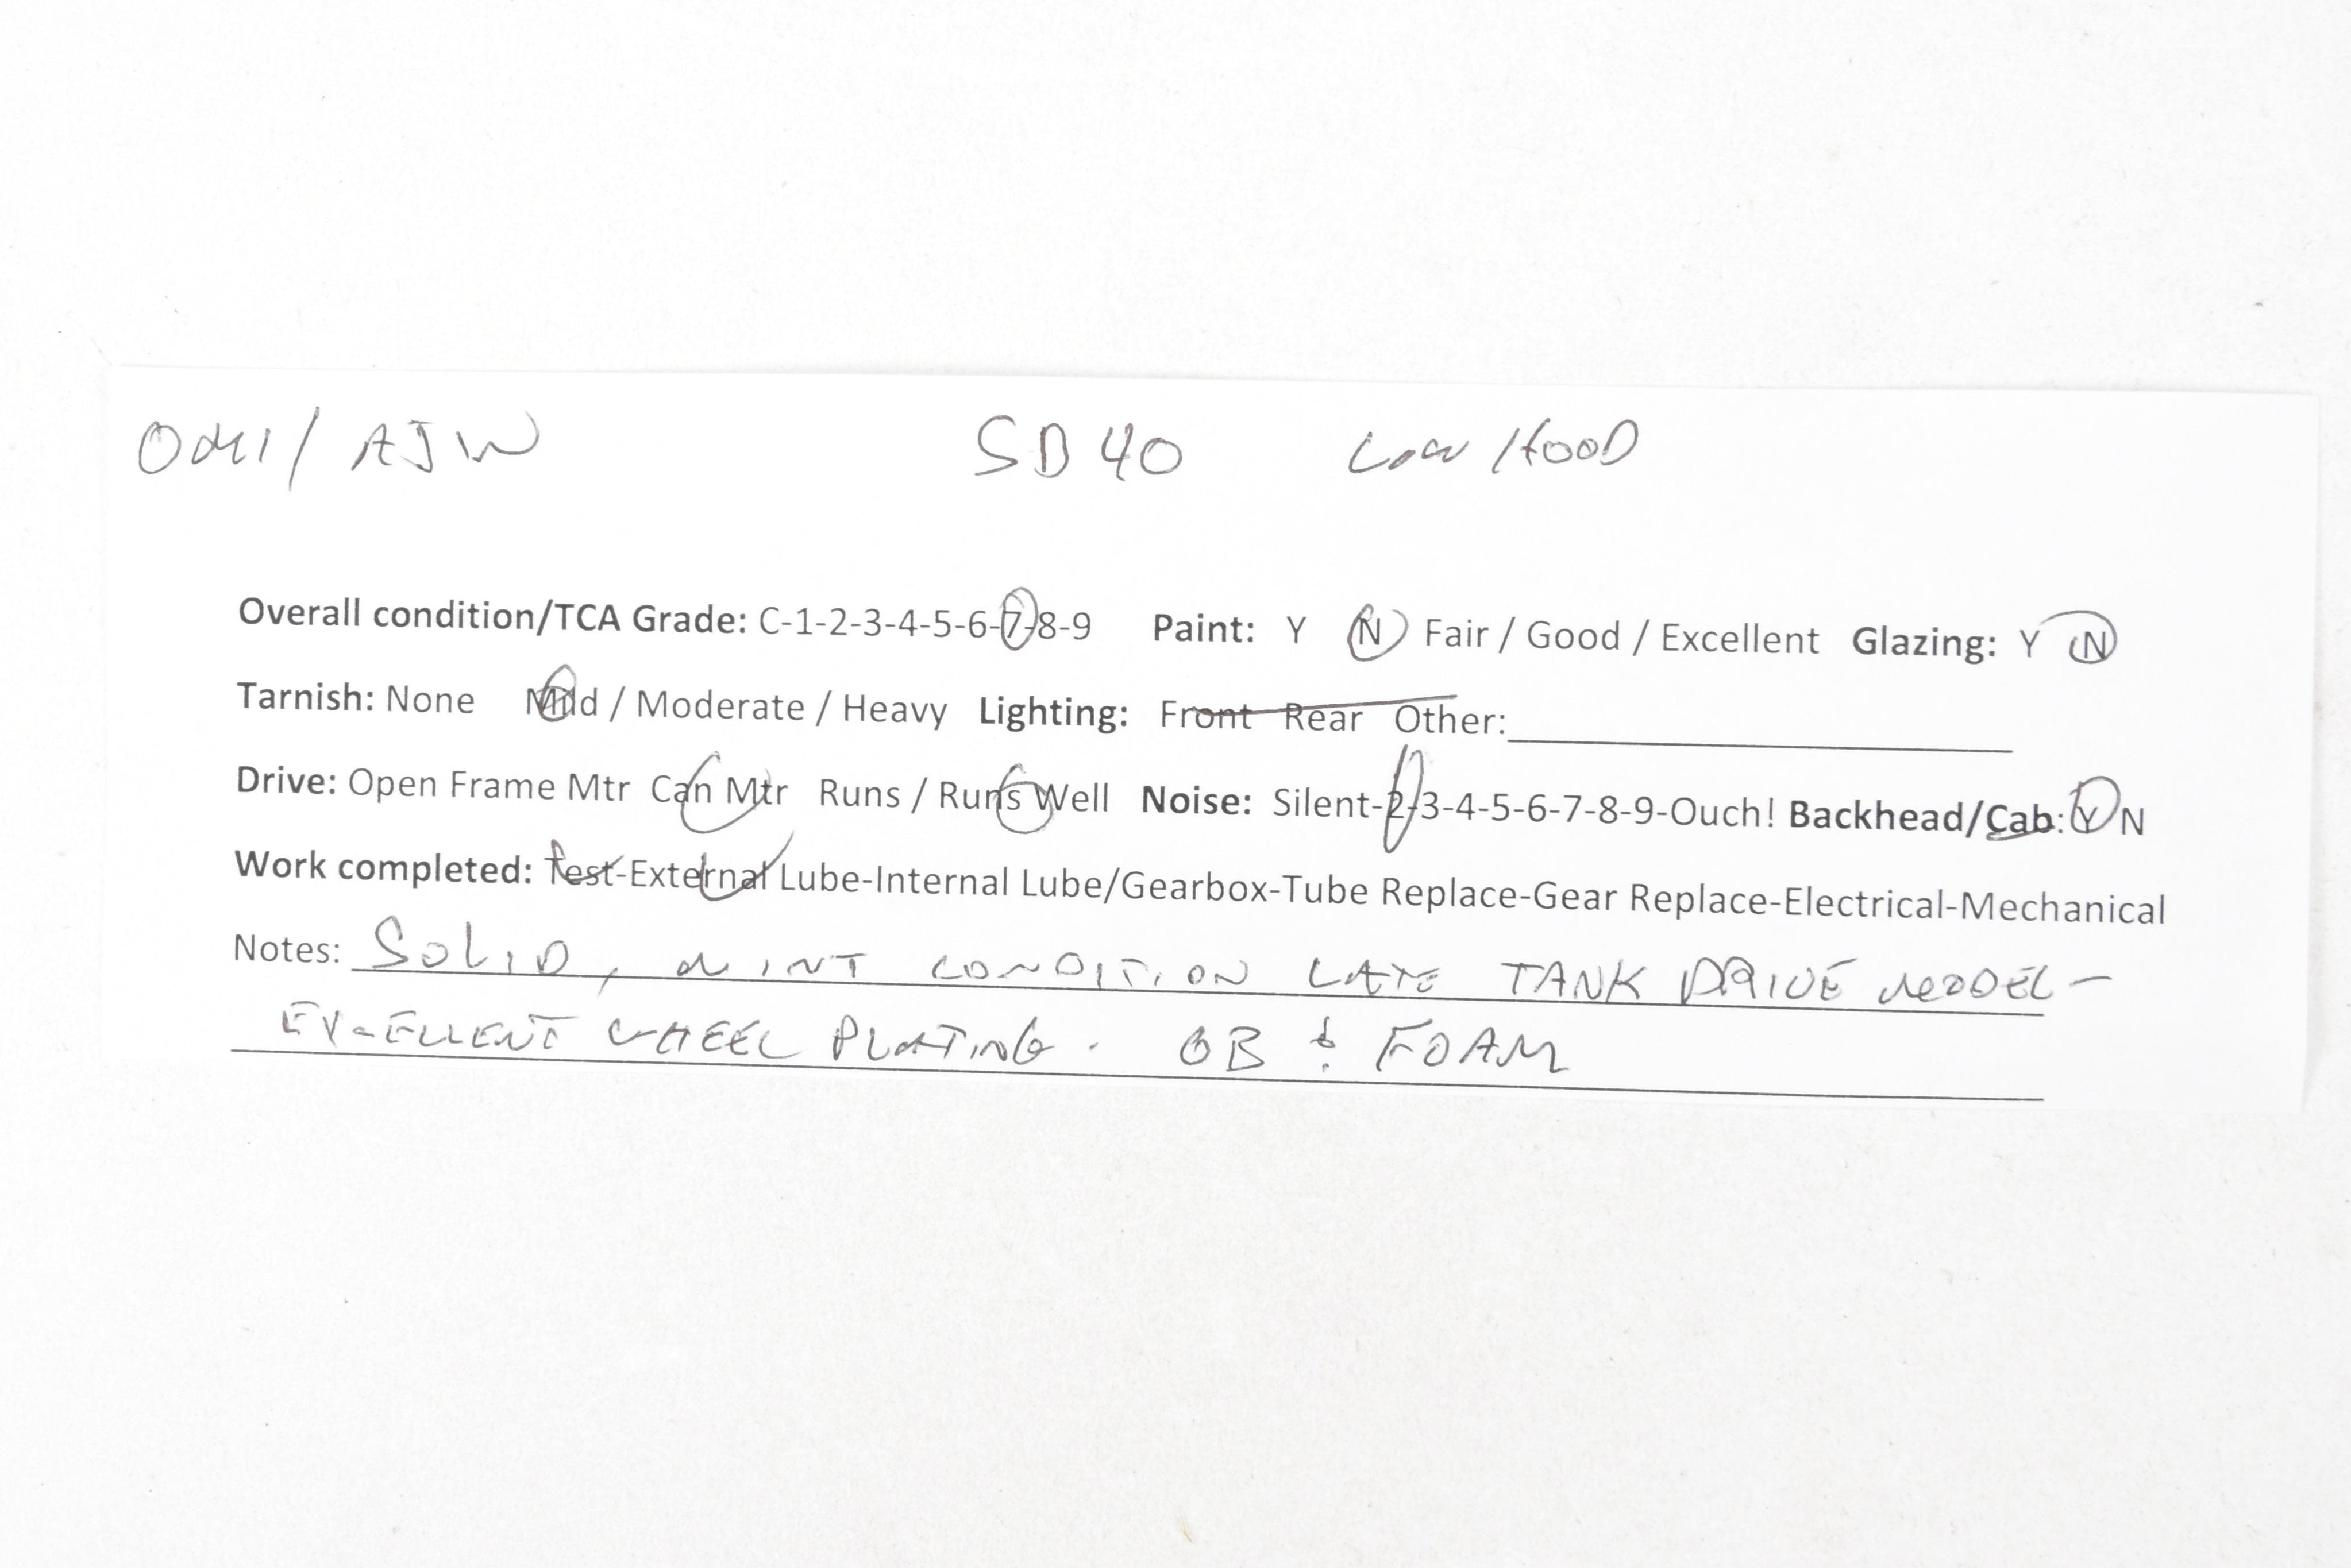 OMI/ AJW SD40 LOW HOOD
Overall condition/TCA Grade: C-1-2-3-4-5-6-7-8-9 Paint: Y N Fair / Good / Excellent Glazing: Y N
Tarnish: None Mild / Moderate / Heavy Lighting: Front Rear Other:
Drive: Open Frame Mtr Can Mtr Runs / Runs Well Noise: Silent-2-3-4-5-6-7-8-9-Ouch! Backhead/Cab: Y N
Work completed: Test-External Lube-Internal Lube/Gearbox-Tube Replace-Gear Replace-Electrical-Mechanical
Notes: SOLID, MINT CONDITION LATE TANK DRIVE MODEL -
EXCELLENT WHEEL PLATING. OB & FOAM